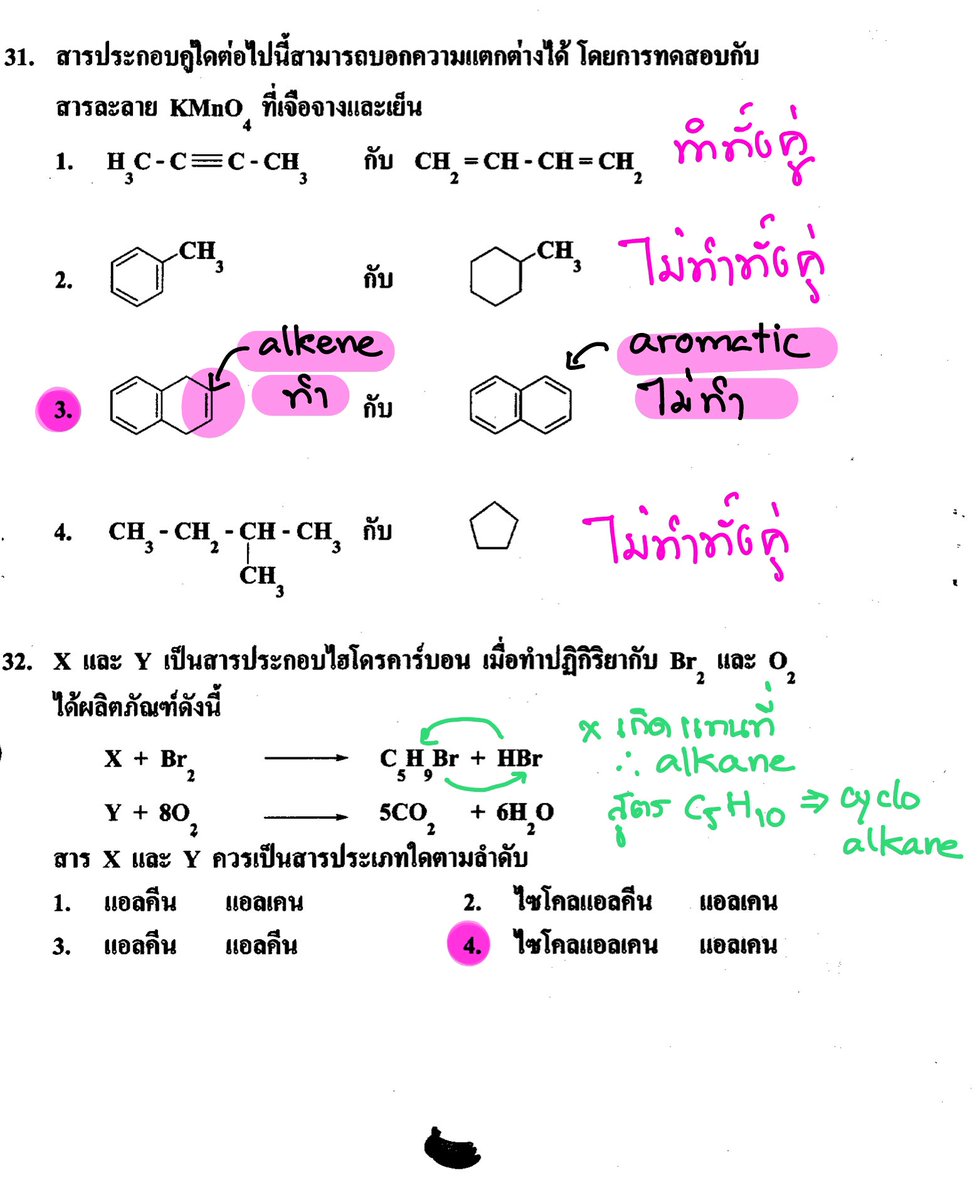 31. สารประกอบคู่ใดต่อไปนี้สามารถบอกความแตกต่างได้ โดยการทดสอบกับ
สารละลาย KMnO₄ ที่เจือจางและเย็น
1. H₃C - C≡C - CH₃ กับ CH₂ = CH - CH = CH₂ ทำทั้งคู่
2. CH₃ กับ CH₃ ไม่ทำทั้งคู่
alkene aromatic
3. ทำ กับ ไม่ทำ
4. CH₃ - CH₂ - CH - CH₃ กับ ไม่ทำทั้งคู่
CH₃
32. X และ Y เป็นสารประกอบไฮโดรคาร์บอน เมื่อทำปฏิกิริยากับ Br₂ และ O₂
ได้ผลิตภัณฑ์ดังนี้
X + Br₂ ⟶ C₅H₉Br + HBr
Y + 8O₂ ⟶ 5CO₂ + 6H₂O
x เกิดแทนที่
∴ alkane
สูตร C₅H₁₀ ⇒ cyclo
alkane
สาร X และ Y ควรเป็นสารประเภทใดตามลำดับ
1. แอลคีน แอลเคน 2. ไซโคลแอลคีน แอลเคน
3. แอลคีน แอลคีน 4. ไซโคลแอลเคน แอลเคน